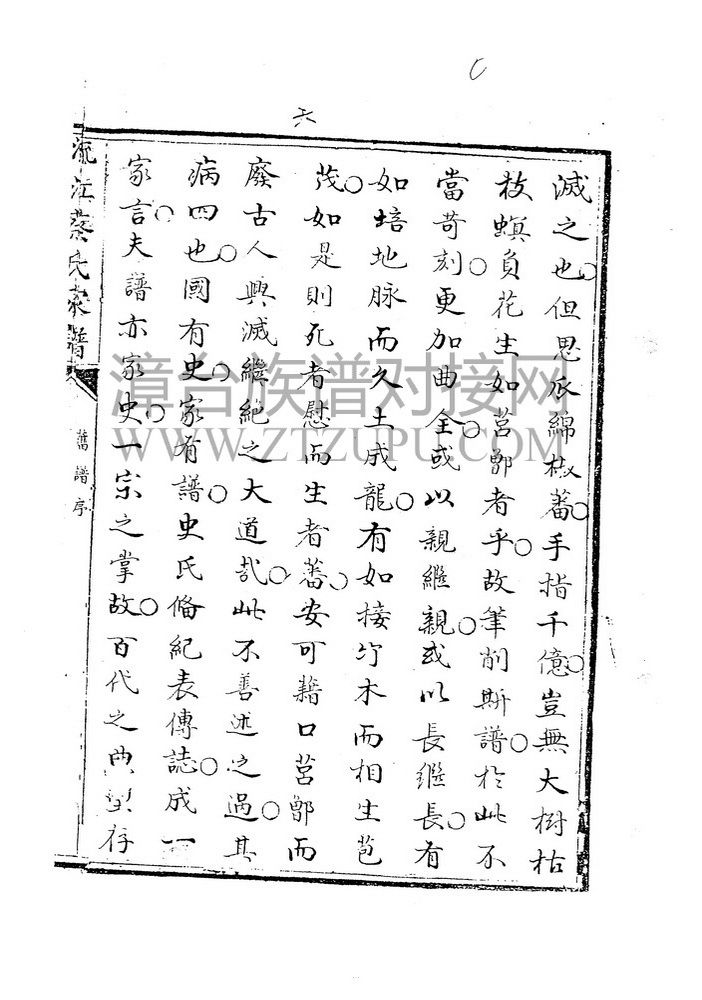 六
滅之也○但思瓜綿椒蕃○手指千億○豈無大樹枯
枝螟負花生如莒鄫者乎○故筆削斯譜○於此不
當苛刻○更加曲全○或以親繼親○或以長繼長○有
如培地脉而久土成龍○有如接竹木而相生苞
茂○如是則死者慰而生者蕃○安可藉口莒鄫而
廢古人興滅繼絕之大道哉○此不善述之過○其
病四也○國有史○家有譜○史氏偹紀表傳誌○成一
家言○夫譜亦家史○一宗之掌故○百代之典型存
流江蔡氏家譜
舊譜序
漳台族谱对接网
WWW.ZTZUPU.COM